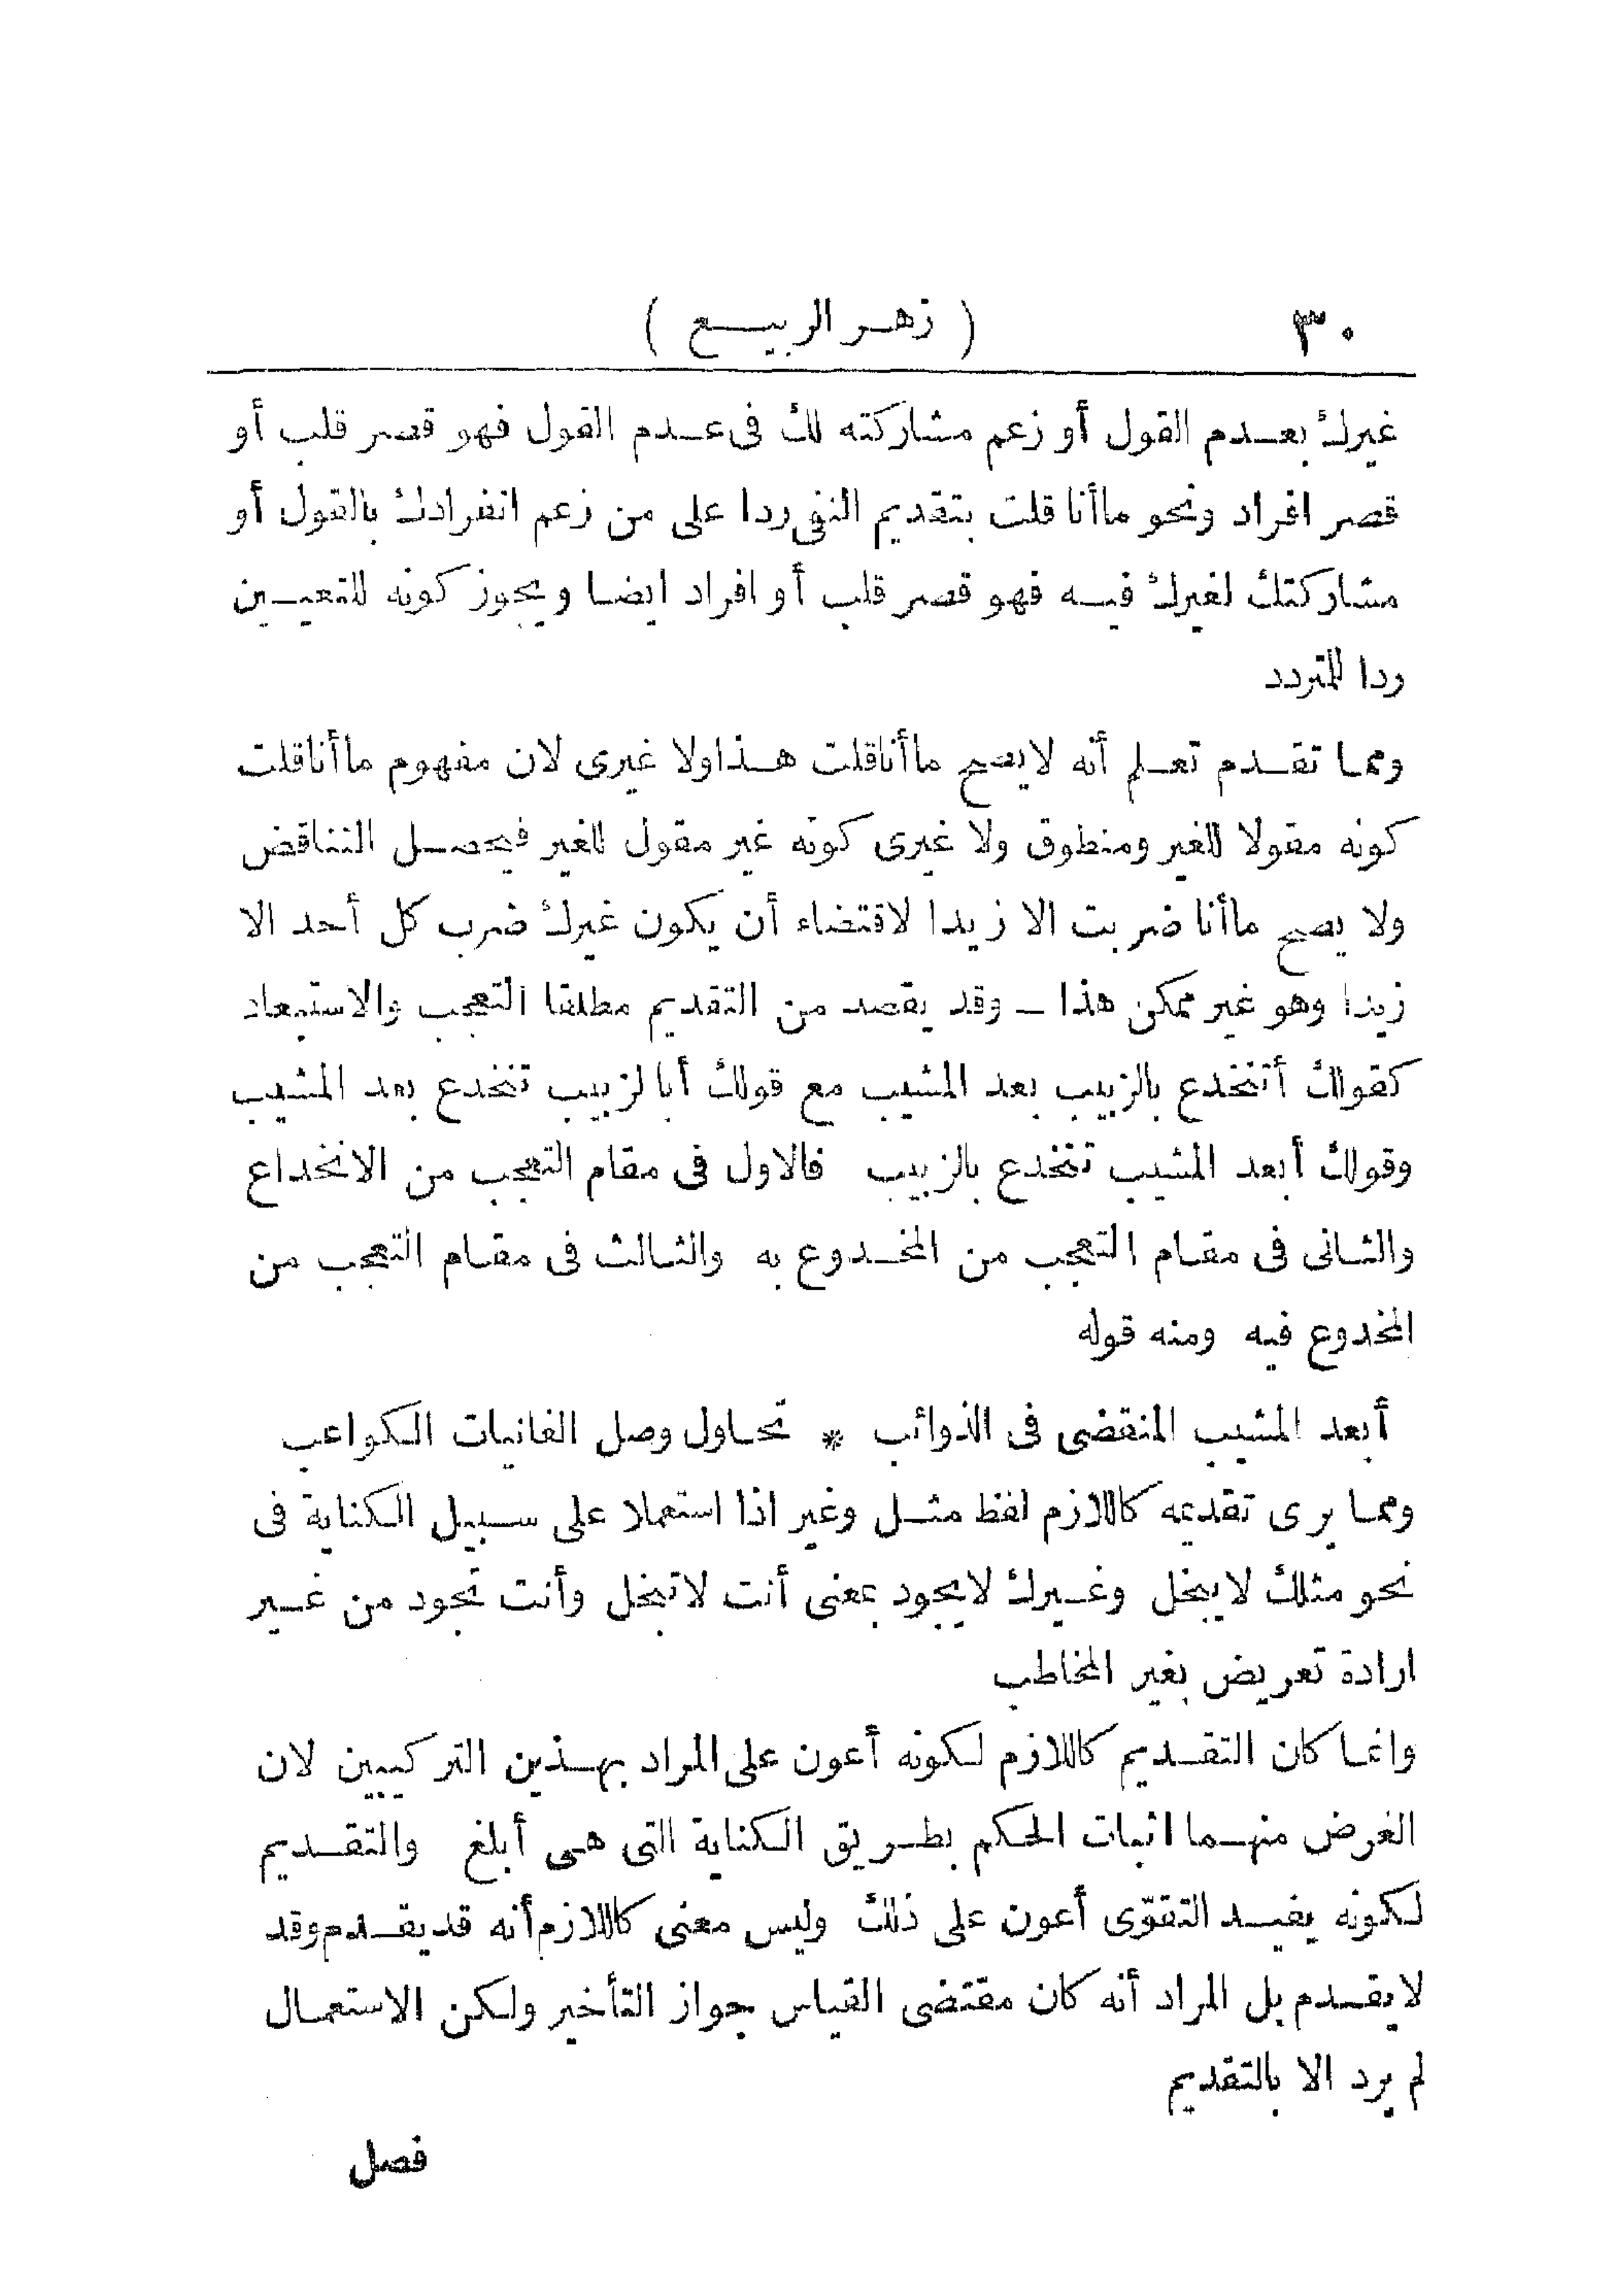 ٣٠
( زهر الربيع )
غيرك بعدم القول أو زعم مشاركته لك فى عدم القول فهو قصر قلب أو
قصر افراد ونحو ماأنا قلت بتقديم النفى ردا على من زعم انفرادك بالقول أو
مشاركتك لغيرك فيه فهو قصر قلب أو افراد ايضا ويجوز كونه للتعيين
ردا للمتردد
ومما تقدم تعلم أنه لايصح ماأناقلت هذا ولا غيرى لان مفهوم ماأناقلت
كونه مقولا للغير ومنطوق ولا غيرى كونه غير مقول للغير فيحصل التناقض
ولا يصح ماأنا ضربت الا زيدا لاقتضاء أن يكون غيرك ضرب كل أحد الا
زيدا وهو غير ممكن هذا ــ وقد يقصد من التقديم مطلقا التعجب والاستبعاد
كقولك أتنخدع بالزبيب بعد المشيب مع قولك أبالزبيب تنخدع بعد المشيب
وقولك أبعد المشيب تنخدع بالزبيب فالاول فى مقام التعجب من الانخداع
والثانى فى مقام التعجب من المخدوع به والثالث فى مقام التعجب من
المخدوع فيه ومنه قوله
أبعد المشيب المنقضى فى الذوائب * تحاول وصل الغانيات الكواعب
ومما يرى تقديمه كاللازم لفظ مثل وغير اذا استعملا على سبيل الكناية فى
نحو مثلك لايبخل وغيرك لايجود بمعنى أنت لاتبخل وأنت تجود من غير
ارادة تعريض بغير المخاطب
وانما كان التقديم كاللازم لكونه أعون على المراد بهذين التركيبين لان
الغرض منهما اثبات الحكم بطريق الكناية التى هى أبلغ والتقديم
لكونه يفيد التقوّى أعون على ذلك وليس معنى كاللازم أنه قد يقدم وقد
لايقدم بل المراد أنه كان مقتضى القياس جواز التأخير ولكن الاستعمال
لم يرد الا بالتقديم
فصل